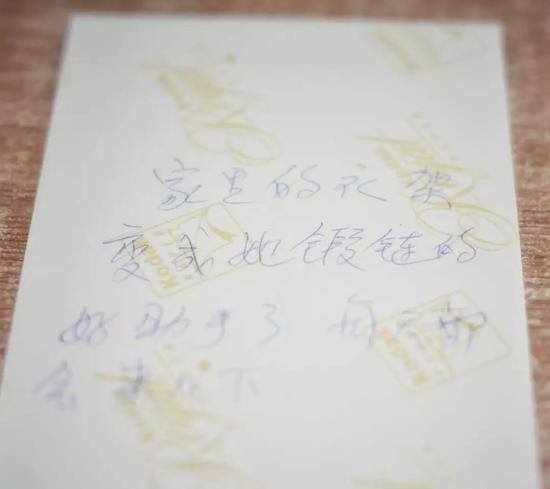 家里的衣架
变成她锻链的
好助手了 每天都
会来几下
Kodak
Kodak